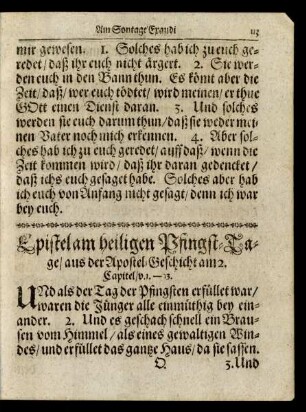 Am Sontage Exaudi 113
mir gewesen. 1. Solches hab ich zu euch ge-
redet/ daß ihr euch nicht ärgert. 2. Sie wer-
den euch in den Bann thun. Es kömt aber die
Zeit/ daß/ wer euch tödtet/ wird meinen/ er thue
GOtt einen Dienst daran. 3. Und solches
werden sie euch darum thun/ daß sie weder mei-
nen Vater noch mich erkennen. 4. Aber sol-
ches hab ich zu euch geredet/ auff daß/ wenn die
Zeit kommen wird/ daß ihr daran gedencket/
daß ichs euch gesaget habe. Solches aber hab
ich euch von Anfang nicht gesagt/ denn ich war
bey euch.
Epistel am heiligen Pfingst-Ta-
ge/ aus der Apostel-Geschicht am 2.
Capitel/ v. 1. — 13.
UNd als der Tag der Pfingsten erfüllet war/
waren die Jünger alle einmüthig bey ein-
ander. 2. Und es geschach schnell ein Brau-
sen vom Himmel/ als eines gewaltigen Win-
des/ und erfüllet das gantze Haus/ da sie sassen.
O 3. Und